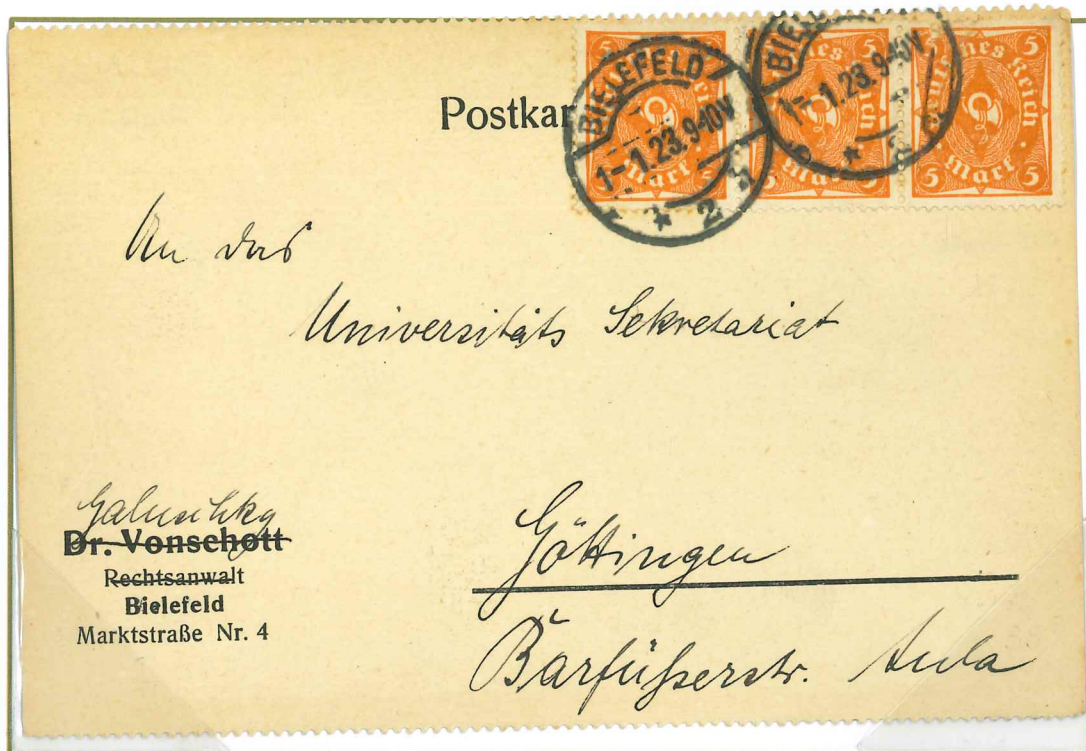 Postkar
BIELEFELD
1.-1.23.9-10V
* 2
BIEL
1.-1.23.9-10V
* 2
5 5
Deutsches Reich
5
Mark
5 5
An das
Universitäts Sekretariat
Galuschka
Dr. Vonschott
Rechtsanwalt
Bielefeld
Marktstraße Nr. 4
Göttingen
Barfüßerstr. Aula